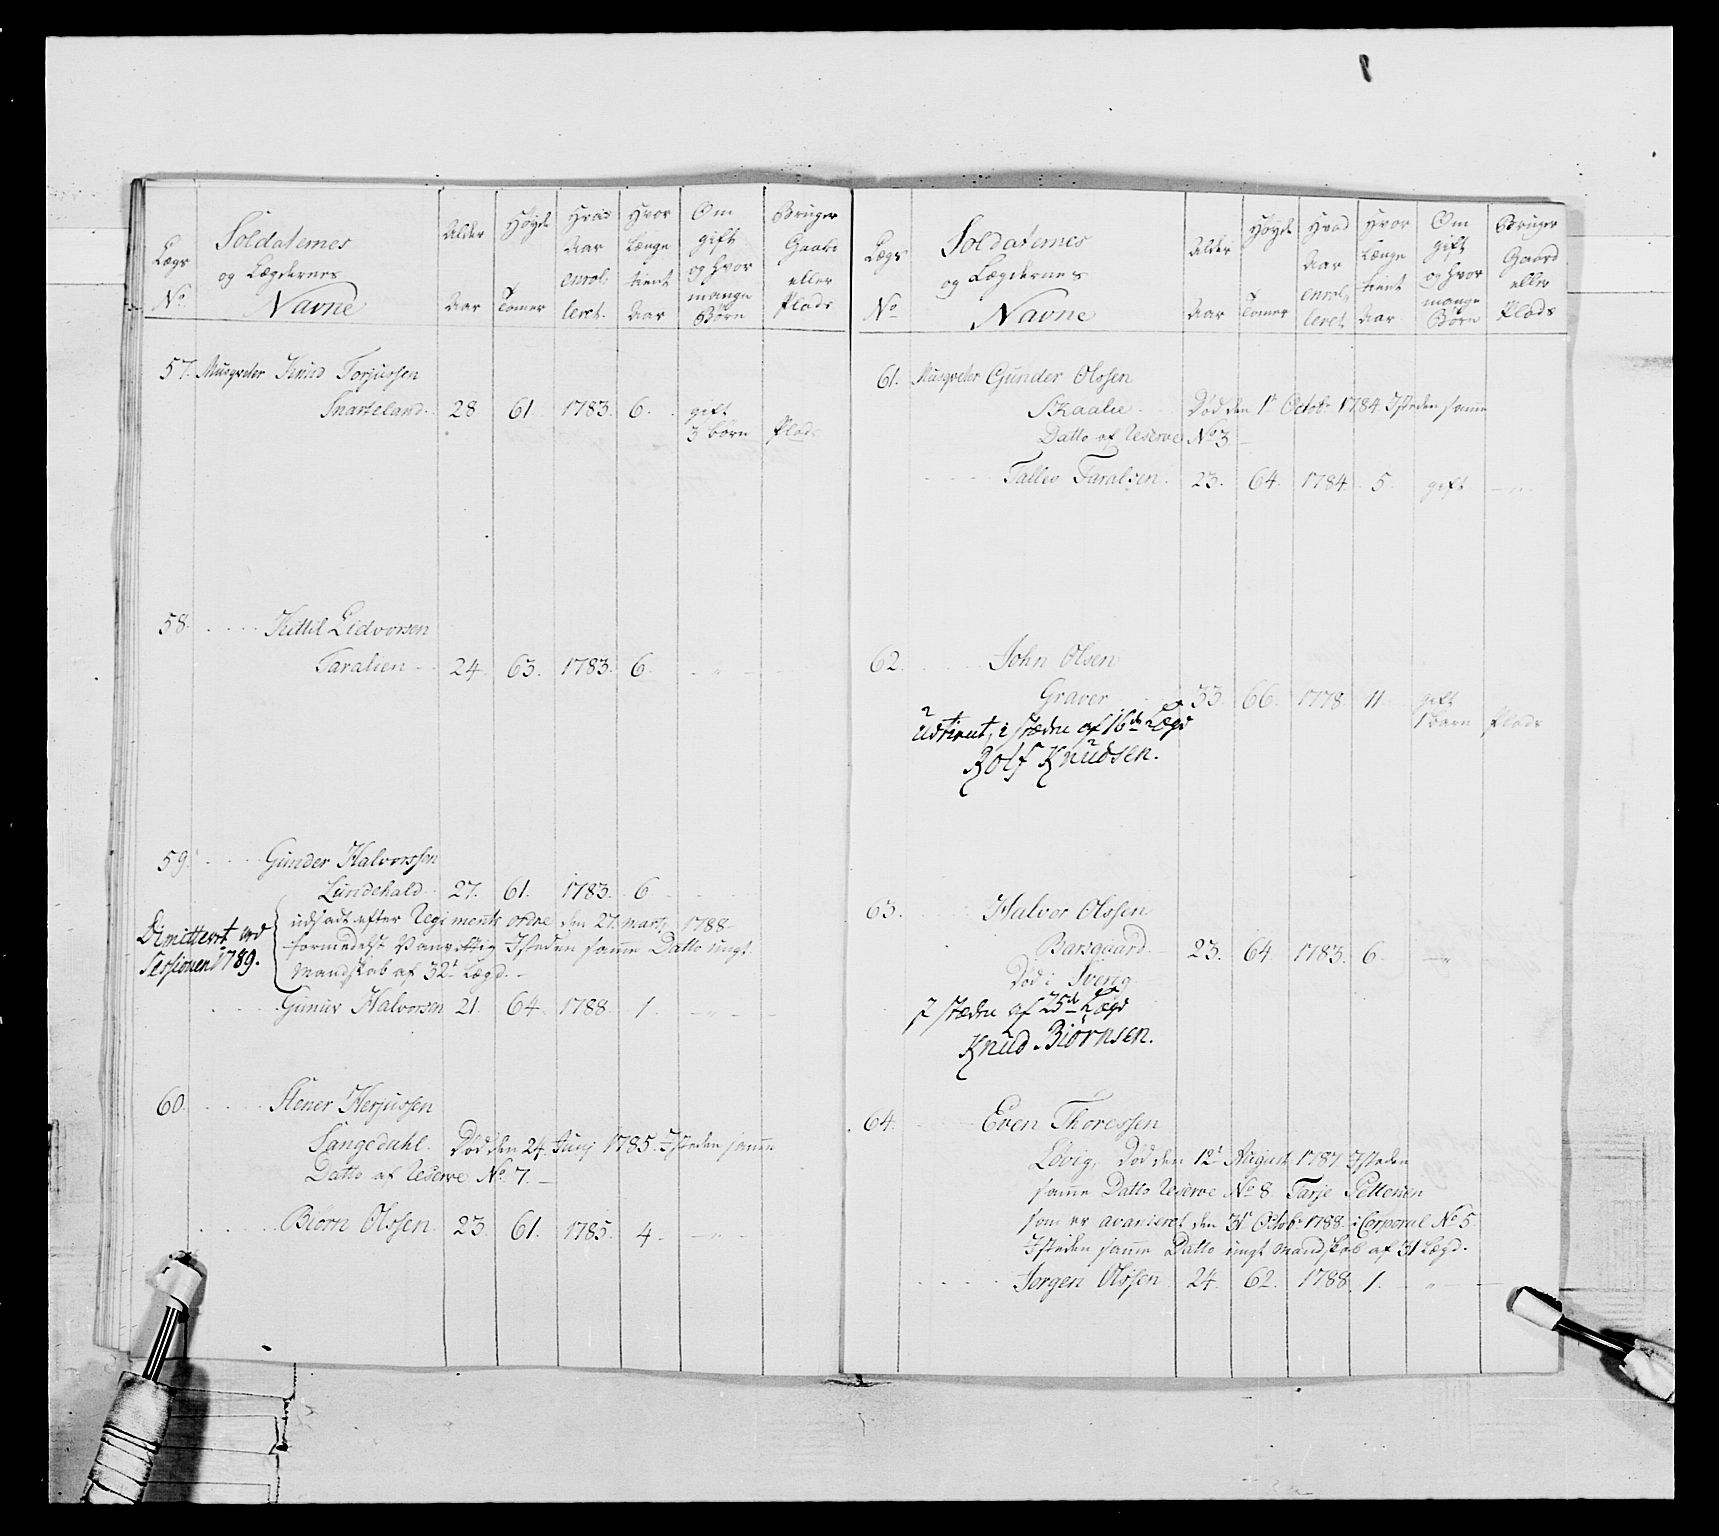 Lægs No. Soldaternes og Lægdernes Navne Alder Aar Høyde Tomer Hvad Aar enrolleret. Hvor længe tient Aar Om gift og hvor mange Børn Bruger Gaard eller Plads
57. Musqveter Knud Torjussen
Snarteland. 28 61. 1783. 6. gift
3 børn Plads
58. Kittil Lidvorsen
Taralien 24. 63. 1783. 6. „
59. Gunder Halvorssen
Lundehald. 27. 61. 1783. 6
udsadt efter Regiments ordre den 27 Martj 1788
formedelst Vanvittig Isteden samme Datto ungt
Mandskab af 32t Lægd.
Dimittert ved
Sessionen 1789.
Halvorsen 21. 64. 1788. 1. „
60. Stener Herjussen
Langedahl. Død den 24 Junj 1785. Isteden samme
Datto af Reserve No. 7.
Biørn Olssen. 23. 61. 1785. 4. „
Lægs No Soldaternes og Lægdernes Navne Alder Aar Høyde Tomer Hvad Aar enrolleret Hvor længe tient Aar Om gift og hvor mange Børn Bruger Gaard eller Plads
61. Musqveter Gunder Olssen
Skaalie. Død den 1t Octobr 1784 Isteden samme
Datto af Reserve No 3.
Tallev Taralsen. 23. 64. 1784. 5. gift „
62. John Olsen
Graver 33. 66. 1778. 11. gift
1 barn Plads
Udtient, i stæden af 16de Lægd
Rolf Knudsen.
63. Halvor Olssen
Barsgaard. 23. 64. 1783. 6. „
Død i Sverig
I stæden af 25de Lægd
Knud Biørnsen.
64. Even Thoressen
Løvig, Død den 12t August 1787 Isteden
samme Datto Reserve No 8 Tarje Pettersen
som er avanseret den 31t Octobr 1788 i Corporal No 5
Isteden samme Datto ungt Mandskab af 31 Lægd.
Jørgen Olssen 24. 62. 1788. 1. „